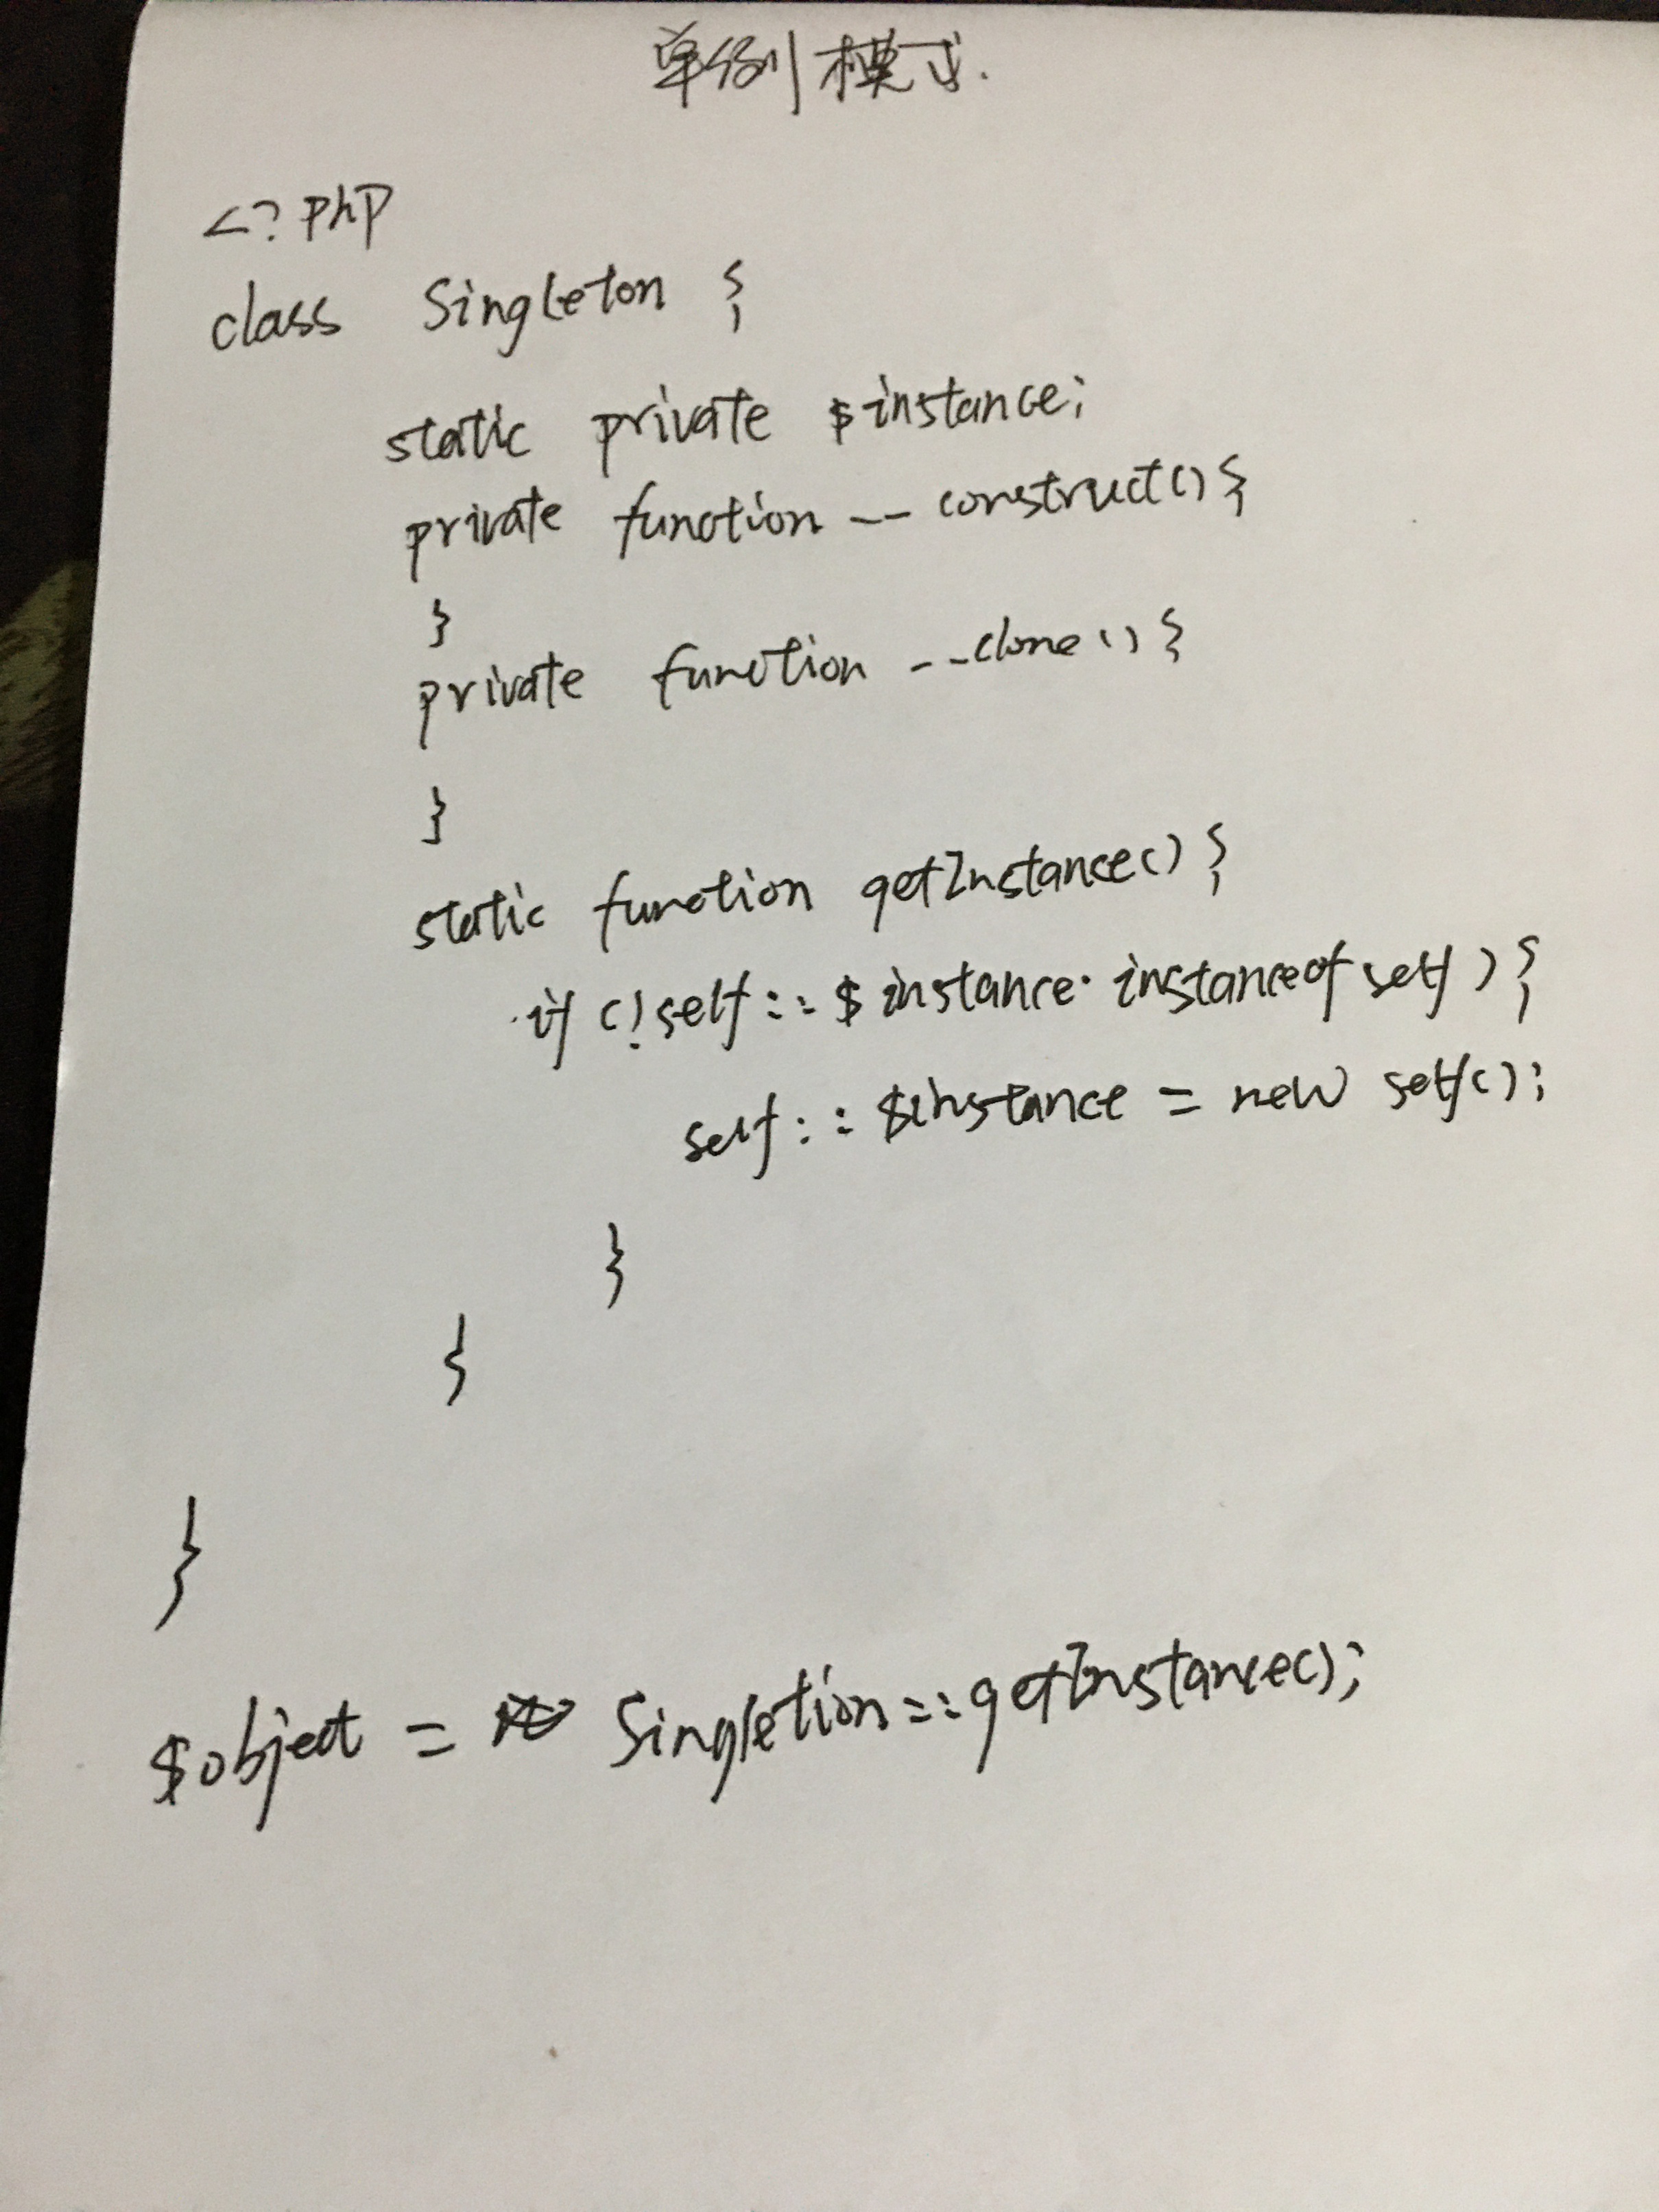 单例模式.
<?php
class Singleton {
static private $instance;
private function __construct() {
}
private function __clone() {
}
static function getInstance() {
if (!self::$instance instanceof self) {
self::$instance = new self();
}
{
}
$object = Singletion::getInstance();